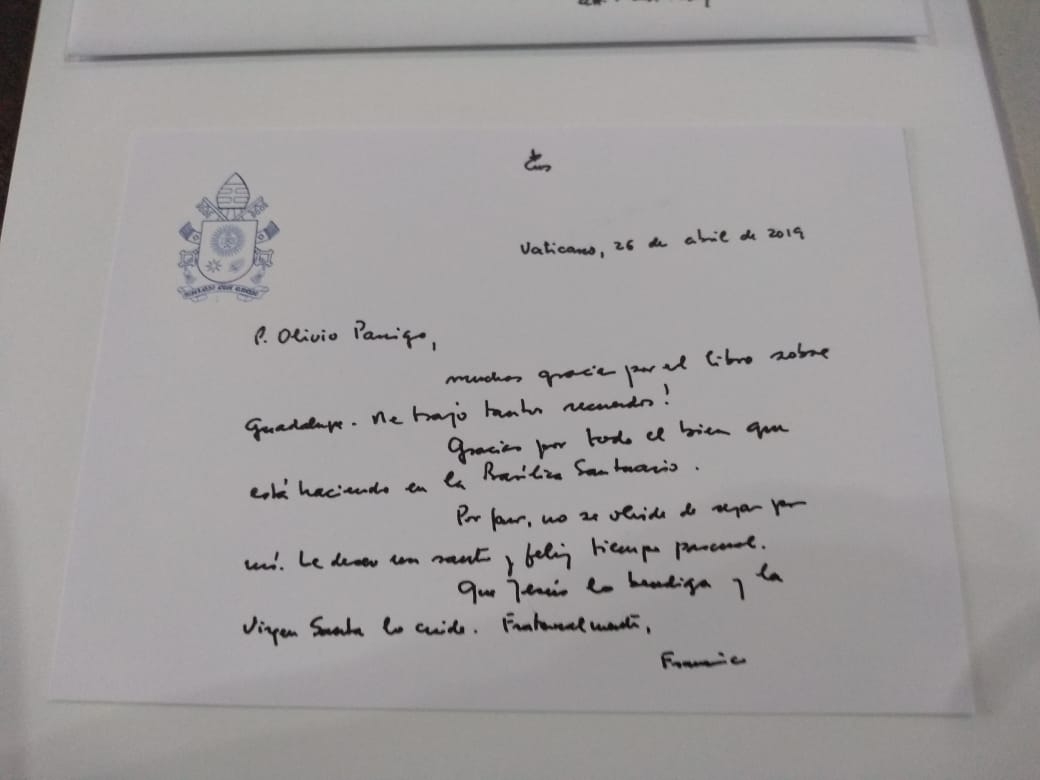 Vaticano, 26 de abril de 2019
P. Olivio Panigo,
muchas gracias por el libro sobre
Guadalupe. Me trajo tantos recuerdos!
Gracias por todo el bien que
está haciendo en la Basílica Santuario.
Por favor, no se olvide de rezar por
mí. Le deseo un santo y feliz tiempo pascual.
Que Jesús lo bendiga y la
Virgen Santa lo cuide. Fraternalmente,
Francisco